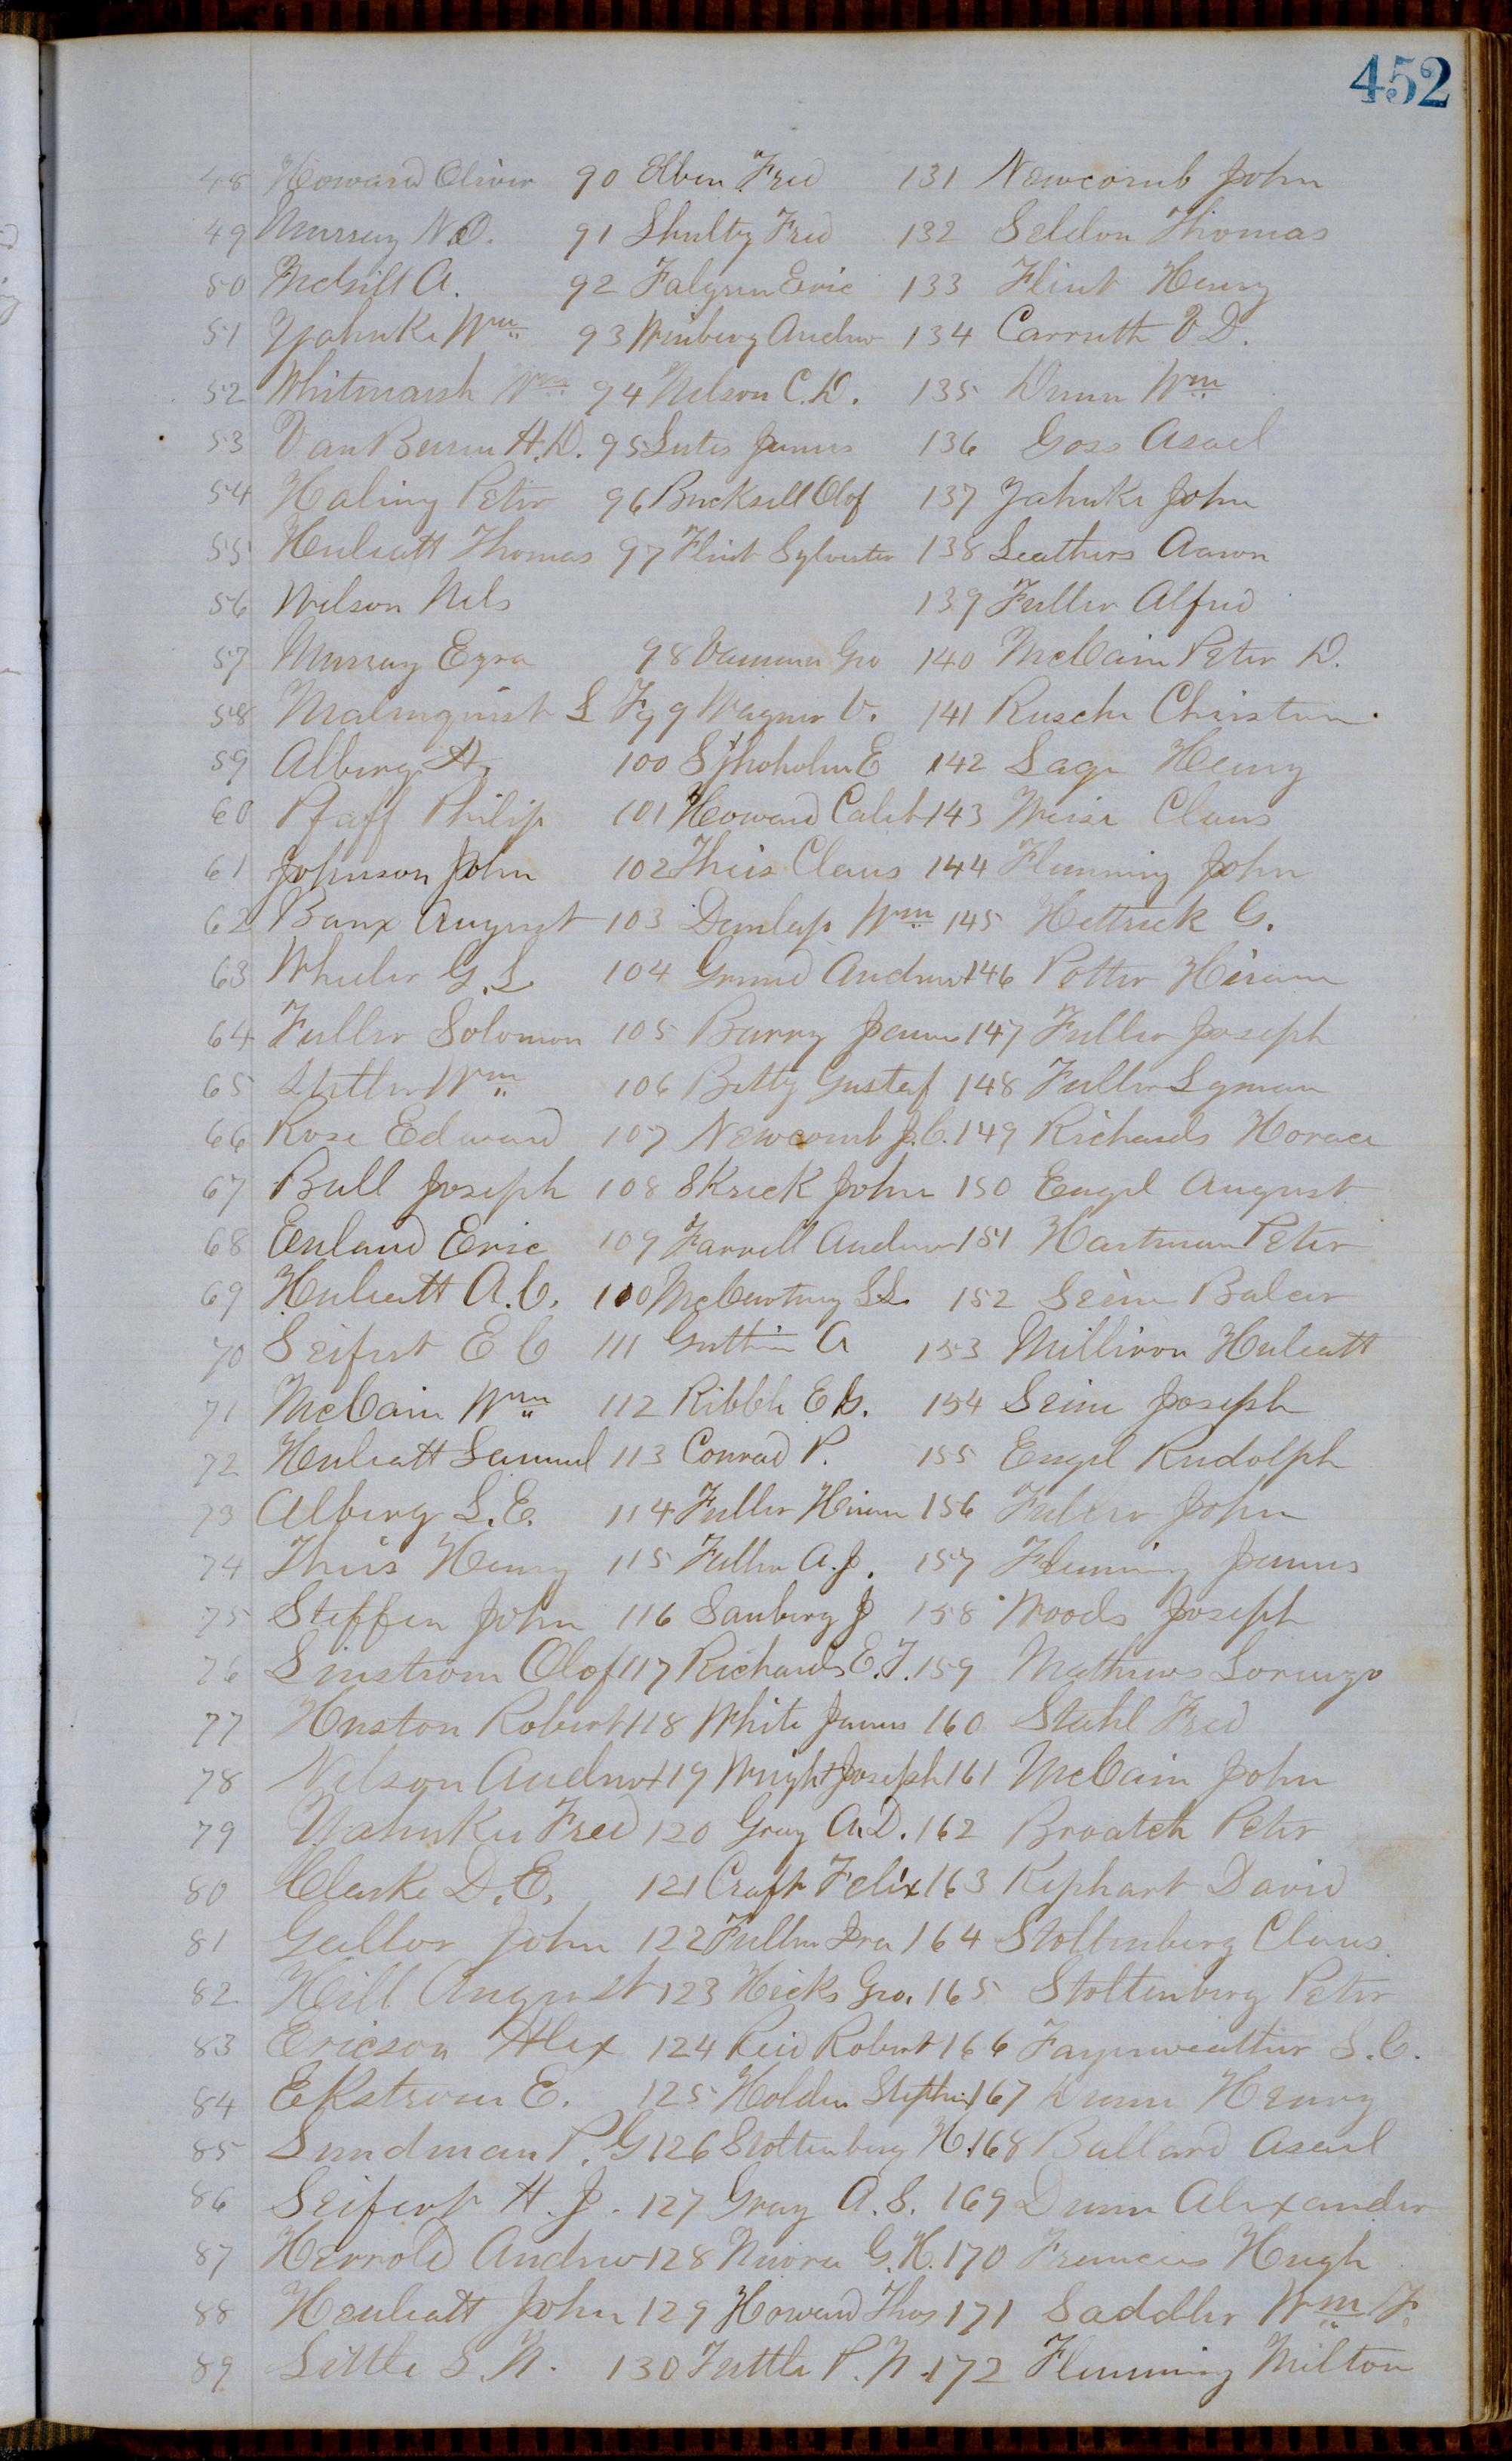 452
48 Howard Oliver 90 Elben Fred 131 Newcomb John
49 Murray N.D. 91 Shultz Fred 132 Seldon Thomas
50 McGill A. 92 Falgren Eric 133 Flint Henry
51 Yahnke Wm 93 Winberg Andrew 134 Carruth V D.
52 Whitmarsh Wm 94 Nelson C.D. 135 Dunn Wm
53 Van Buren H.D. 95 Lutes James 136 Goss Asael
54 Haling Peter 96 Bucksell Olof 137 Yahnke John
55 Huleatt Thomas 97 Flint Sylvester 138 Leathers Aaron
56 Wilson Nels 139 Fuller Alfred
57 Murray Ezra 98 Vammen Geo 140 McCain Peter D.
58 Malmquist L F 99 Wagner V. 141 Rusche Christian.
59 Alberg A. 100 Sjhoholm E 142 Sage Henry
60 Pfaff Philip 101 Howard Caleb 143 Weise Claus
61 Johnson John 102 Theis Claus 144 Flemming John
62 Banx August 103 Dunlap Wm 145 Hettrick G.
63 Wheeler G.L. 104 Andrew 146 Potter Hiram
64 Fuller Solomon 105 Barry James 147 Fuller Joseph
65 Wm 106 Betty Gustaf 148 Fuller Lyman
66 Rose Edward 107 Newcomb J.C. 149 Richards Horace
67 Bull Joseph 108 Skrick John 150 Engel August
68 Enland Eric 109 Farrell Andrew 151 Hartman Peter
69 Huleatt A.C. 110 McCartney S L 152 Seim Balcer
70 Seifert E C 111 A 153 Milliron Huleatt
71 McCain Wm 112 Ribble E G. 154 Seim Joseph
72 Huleatt Samuel 113 Conrad P. 155 Engel Rudolph
73 Alberg L.E. 114 Fuller Hiram 156 Fuller John
74 Theis Henry 115 Fuller A.J. 157 Flemming James
75 Steffen John 116 Sanberg J 158 Woods Joseph
76 Linstrom Olof 117 Richards E.T. 159 Mathews Lorenzo
77 Huston Robert 118 White James 160 Stahl Fred
78 Nelson Andrew 119 Wright Joseph 161 McCain John
79 Yahnke Fred 120 Gray A.D. 162 Broatch Peter
80 Clarke D.E. 121 Craft Felix 163 Kephart David
81 Gallor John 122 Fuller Ira 164 Stoltenberg Claus
82 Hill August 123 Hicks Geo. 165 Stoltenberg Peter
83 Ericson Alex 124 Reid Robert 166 Fayerweather S.C.
84 Ekstrom E. 125 Holden Stephen 167 Dunn Henry
85 Sundman P.G 126 Stoltenberg H. 168 Ballard Asael
86 Seifert H.J. 127 Gray A.S. 169 Dunn Alexander
87 Herrold Andrew 128 G.H. 170 Francies Hugh
88 Huleatt John 129 Howard Thos 171 Saddler Wm F.
89 Little S N. 130 Tuttle P.N. 172 Flemming Milton